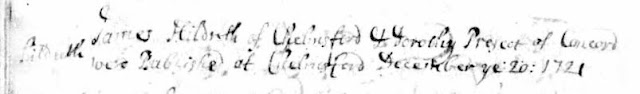 James Hildreth of Chelmsford & Dorothy Prescot of Concord
Hildreth were Published at Chelmsford December ye: 20: 1721